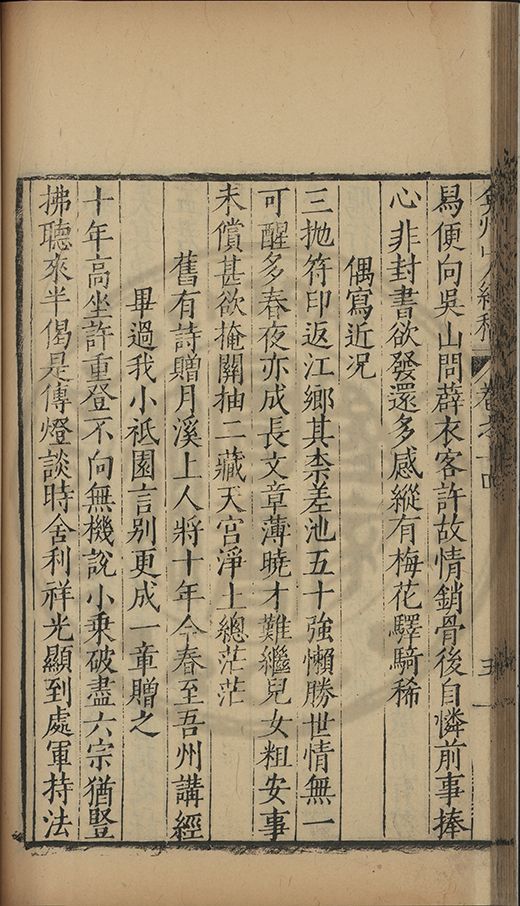 弇州山人續稿 卷之十四 五
曷便向吳山問薜衣客許故情銷骨後自憐前事捧
心非封書欲發還多感縱有梅花驛騎稀
偶寫近况
三拋符印返江鄉其柰差池五十強懶勝世情無一
可醒多春夜亦成長文章薄曉才難繼兒女粗安事
未償甚欲掩關抽二藏天宮淨土總茫茫
舊有詩贈月溪上人將十年今春至吾州講經
畢過我小祗園言别更成一章贈之
十年高坐許重登不向無機說小乗破盡六宗猶豎
拂聽來半偈是傳燈談時舍利祥光顯到處軍持法